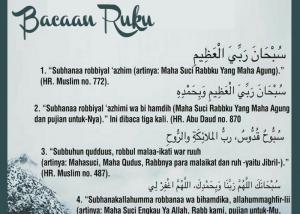 Bacaan Ruku
سُبْحَانَ رَبِّيَ الْعَظِيْمِ
1. “Subhanaa robbiyal ‘azhim (artinya: Maha Suci Rabbku Yang Maha Agung).”
(HR. Muslim no. 772).
سُبْحَانَ رَبِّيَ الْعَظِيْمِ وَبِحَمْدِهِ
2. “Subhanaa robbiyal ‘azhimi wa bi hamdih (Maha Suci Rabbku Yang Maha Agung
dan pujian untuk-Nya).” Ini dibaca tiga kali. (HR. Abu Daud no. 870
سُبُّوحٌ قُدُّوْسٌ، رَبُّ الْمَلَائِكَةِ وَالرُّوْحِ
3. “Subbuhun qudduus, robbul malaa-ikati war ruuh
(artinya: Mahasuci, Maha Qudus, Rabbnya para malaikat dan ruh -yaitu Jibril-).”
(HR. Muslim no. 487).
سُبْحَانَكَ اللَّهُمَّ رَبَّنَا وَبِحَمْدِكَ، اللَّهُمَّ اغْفِرْ لِي
4. “Subhanakallahumma robbanaa wa bihamdika, allahummaghfir-lii
(artinya: Maha Suci Engkau Ya Allah, Rabb kami, pujian untuk-Mu,